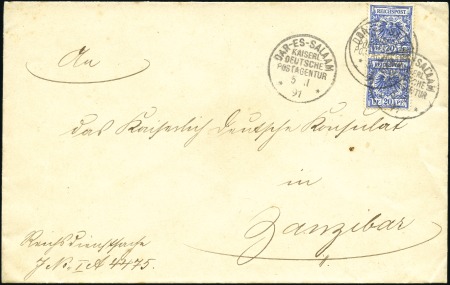 REICHSPOST
20 PF 20
20
DAR-ES-SALAAM
KAISERL.
DEUTSCHE
POSTAGENTUR
91
An
das Kaiserlich Deutsche Konsulat
in
Zanzibar
Reichsdienstsache
J. No. I A 4475.